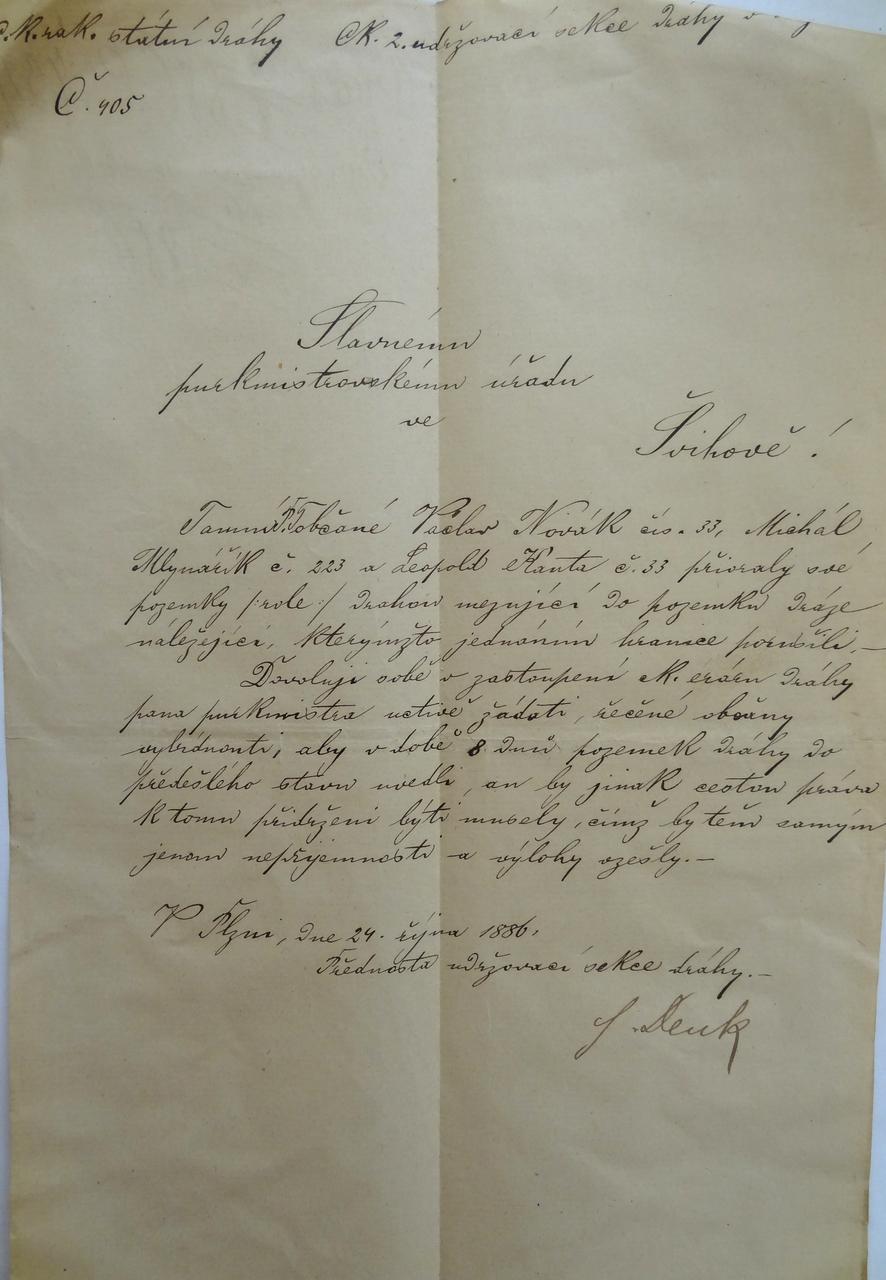 C.k. rak. státní dráhy Ck. 2. udržovací sekce dráhy v
Č. 405
Slavnému
purkmistrovskému úřadu
ve
Švihově !
Tamní P.T. občané Václav Novák čís. 33, Michál
Mlynářík č. 223 a Leopold Kanta č. 33 přioraly své
pozemky /: role :/ drahou mezující do pozemku dráze
náležející, kterýmžto jednáním hranice porušili. —
Dovoluji sobě v zastoupení ck. eráru dráhy
pana purkmistra uctivě žádati, řečené občany
vybídnouti, aby v době 8 dnů pozemek dráhy do
předešlého stavu uvedli, an by jinak cestou práva
k tomu přidrženi býti musely, čímž by těm samým
jenom nepříjemnosti a výlohy vzešly. —
V Plzni, dne 24. října 1886.
Přednosta udržovací sekce dráhy. —
J. Denk